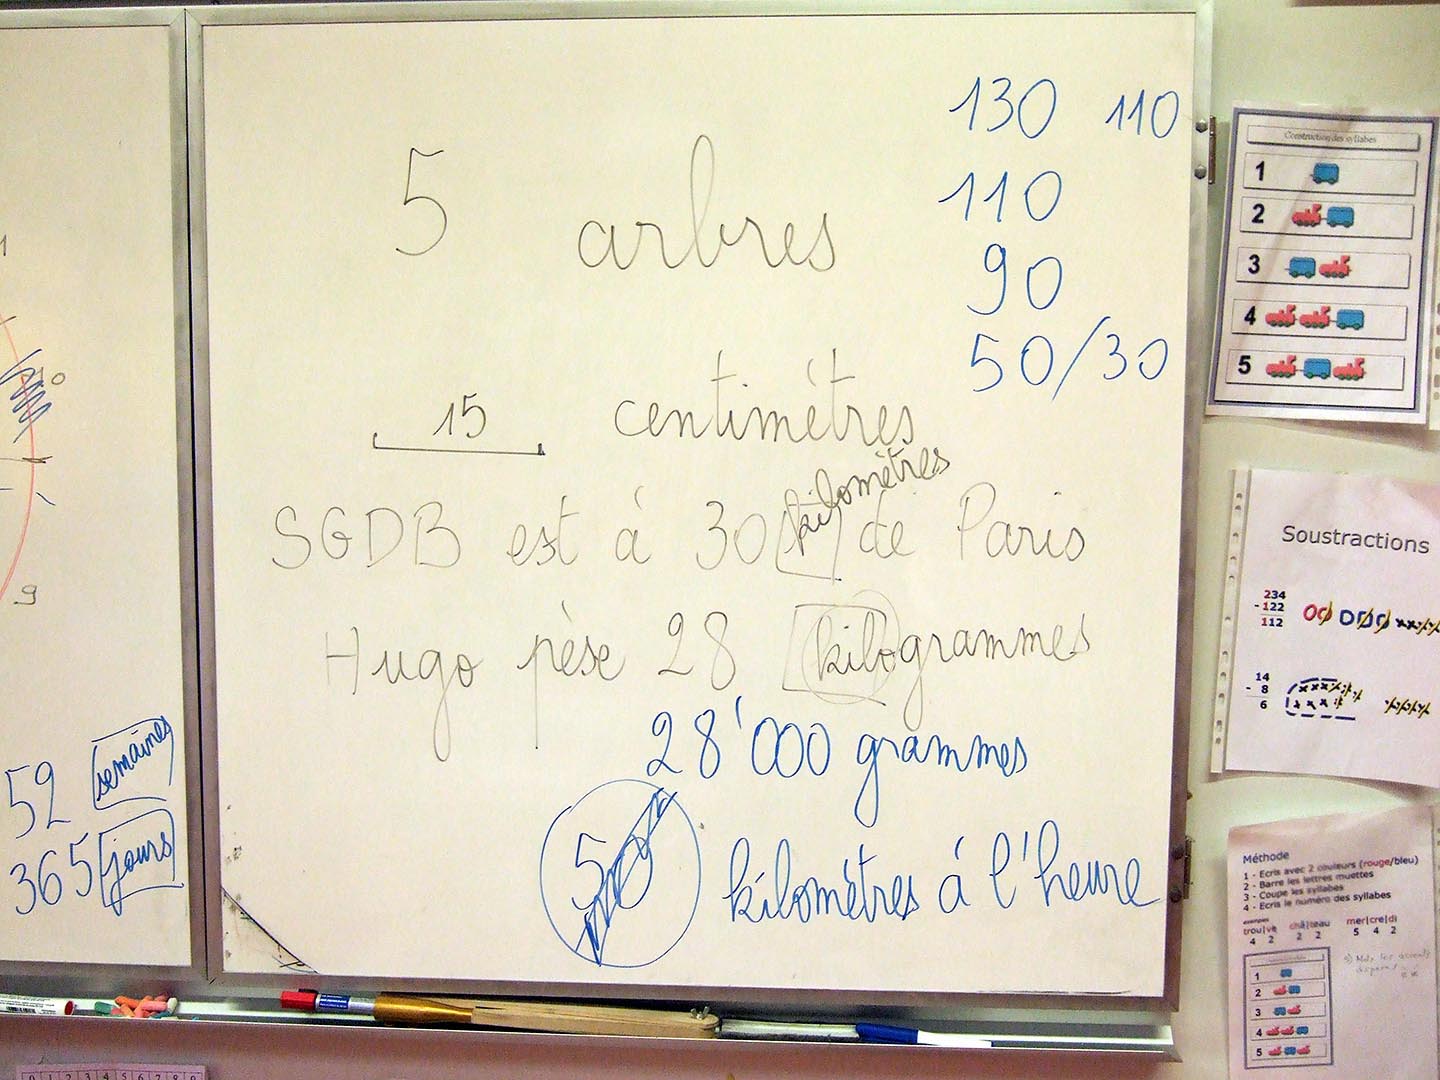 5 arbres
130 110
110
90
50/30
15 centimètres
kilomètres
SGDB est à 30 de Paris
Hugo pèse 28 kilogrammes
28'000 grammes
50 kilomètres à l'heure
10
9
52 semaines
365 jours
Construction des syllabes
1
2
3
4
5
Soustractions
234
-122
112
14
- 8
6
Méthode
1 - Ecris avec 2 couleurs (rouge/bleu)
2 - Barre les lettres muettes
3 - Coupe les syllabes
4 - Ecris le numéro des syllabes
exemples
trou|ve châ|teau mer|cre|di
4 2 2 2 5 4 2
1
2
3
4
5
0 1 2 3 4 5 6 7 8 9